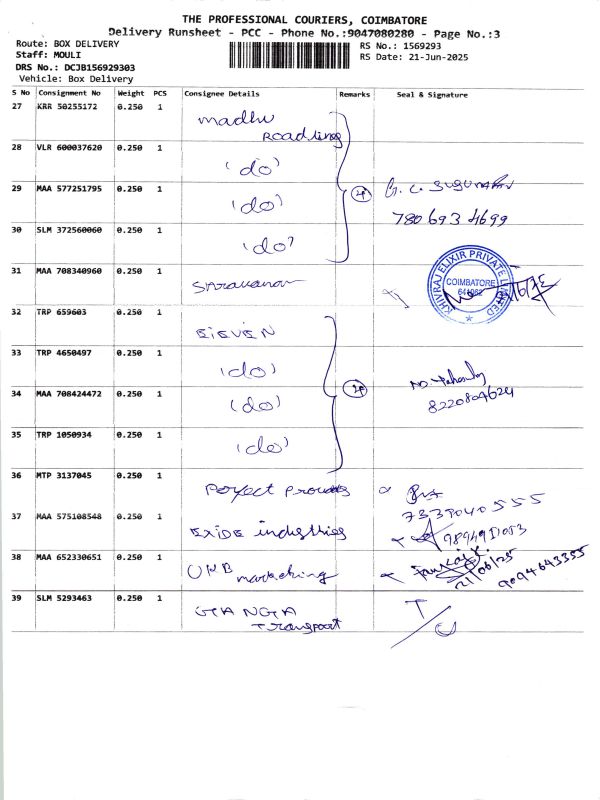 THE PROFESSIONAL COURIERS, COIMBATORE
Delivery Runsheet - PCC - Phone No.:9047080280 - Page No.:3
Route: BOX DELIVERY
RS No.: 1569293
Staff: MOULI
RS Date: 21-Jun-2025
DRS No.: DCJB156929303
Vehicle: Box Delivery
S No Consignment No Weight PCS Consignee Details Remarks Seal & Signature
27 KRR 50255172 0.250 1 Madhu
Roadlines
28 VLR 600037620 0.250 1 'do'
29 MAA 577251795 0.250 1 'do'
G. C. SUGUMARAN
780693 4699
30 SLM 372560060 0.250 1 'do'
31 MAA 708340960 0.250 1 Sharavanan
KHIVRAJ ELIXIR PRIVATE LIMITED
COIMBATORE
32 TRP 659603 0.250 1 EIEVEN
33 TRP 4650497 0.250 1 'do'
34 MAA 708424472 0.250 1 'do'
8220804624
35 TRP 1050934 0.250 1 'do'
36 MTP 3137045 0.250 1 Perfect
7339040555
37 MAA 575108548 0.250 1 EXIDE industries
38 MAA 652330651 0.250 1 marketing
21/06/25
9094643355
39 SLM 5293463 0.250 1 GANGA
Transport